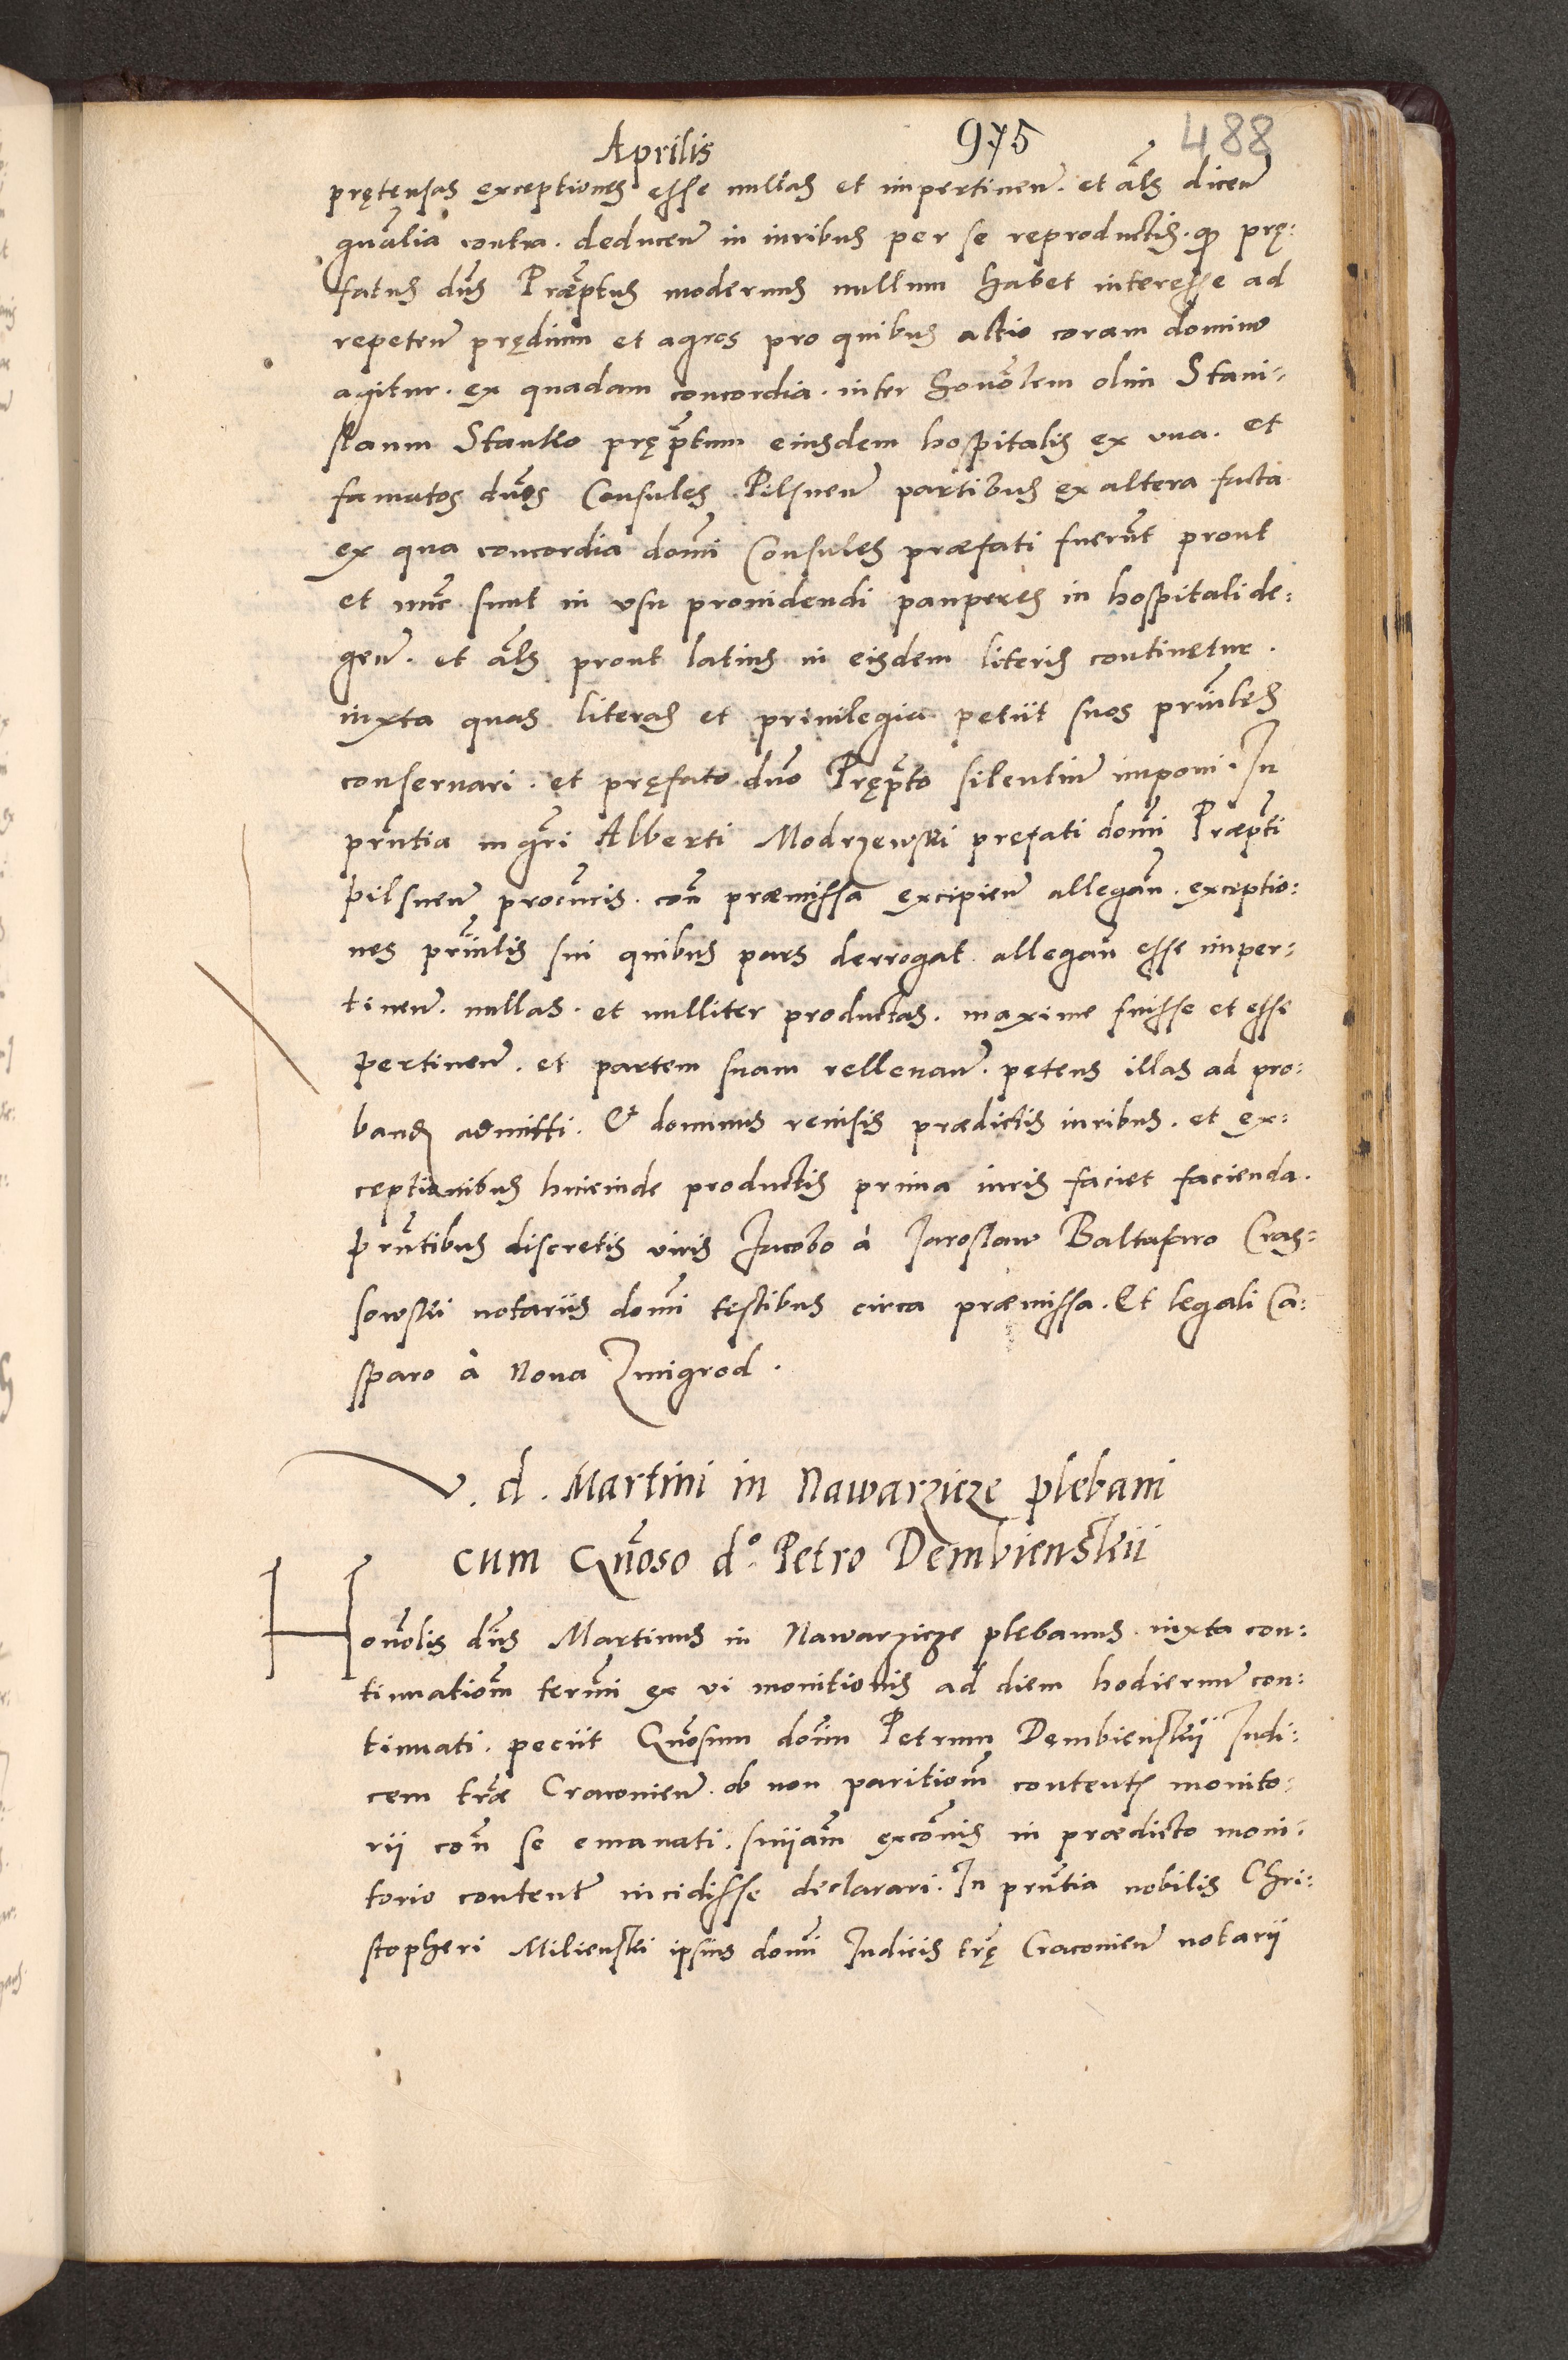 Aprilis 975 488
prętensas exceptiones esse nullas et impertinen̄. et al̄s dicen̄
quālia contra. deducen̄ in iuribus per se reproductis. qđ prę:
fatus dn̄s Præp̄tus modernus nullum habet interesse ad
repeten̄ prędium et agros pro quibus actio coram domino
agitur. ex quadam concordia. inter honōlem olim Stani:
slaum Stanko pręp̄tum eiusdem hospitalis ex vna. et
famatos dn̄os Consules Pilsnen̄ partibus ex altera facta
ex qua concordia domī Consules præfati fuerūt prout
et nūc sunt in vsu prouidendi pauperes in hospitali de:
gen̄. et al̄s prout latius in eisdem literis continetur.
iuxta quas literas et priuilegia petiit suos prin̄les
conseruari. et pręfato dn̄o Pręp̄to silentiū imponi. In
prn̄tia mgr̄i Alberti Modrzewski prefati domī Præp̄ti
pilsnen̄ procūris. con̄ præmissa excipien̄ allegan̄. exceptio:
nes prin̄lis sui quibus pars derrogat allegan̄ esse imper:
tinen̄. nullas. et nulliter productas. maxime fuisse et esse
pertinen̄. et partem suam rellevan̄. petens illas ad pro:
band̄ admitti. Et dominus reuisis prædictis iuribus. et ex:
ceptionibus hincinde productis prima iuris faciet facienda.
Prn̄tibus discretis viris Jacobo à Jaroslaw Baltasaro Cras:
sowski notariis domī testibus circa præmissa. Et legali Ca:
sparo à Noua Zmigrod.
V. d. Martini in Nawarzicze plebani
cum Gn̄oso d.° Petro Dembienskii
Honōlis dn̄s Martinus in Nawarzicze plebanus iuxta con:
tinuatiom̄ termī ex vi monitionis ad diem hodiernū con:
tinuati. petiit Gn̄osum don̄m Petrum Dembienskij Judi:
cem tr̄æ Cracouien̄. ob non paritiom̄ content̄ monito:
rij con̄ se emanati. sn̄iam excōnis in prædicto moni:
torio content̄ incidisse declarari. In prn̄tia nobilis Chri:
stopheri Milienski ipsius domī Judicis tr̄ę Cracouien̄ notarij